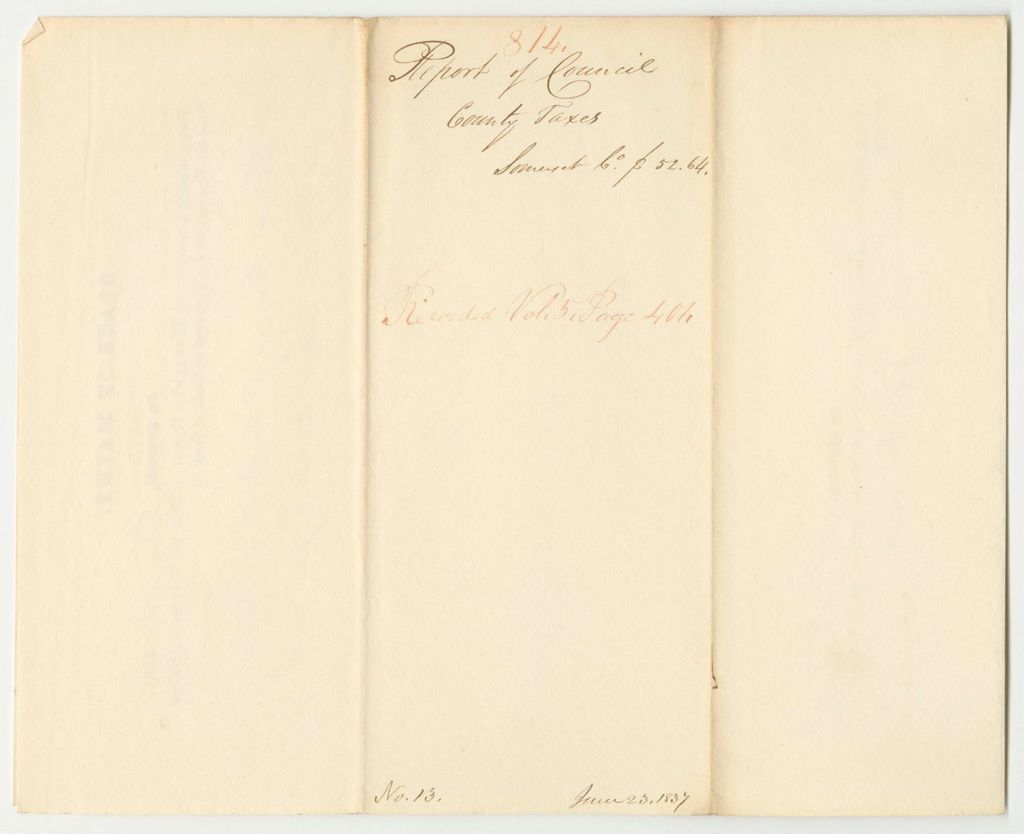 814.
Report of Council
County Taxes
Somerset Co. $ 52.64.
Recorded Vol. 5. Page 401.
No. 13.
June 23. 1837